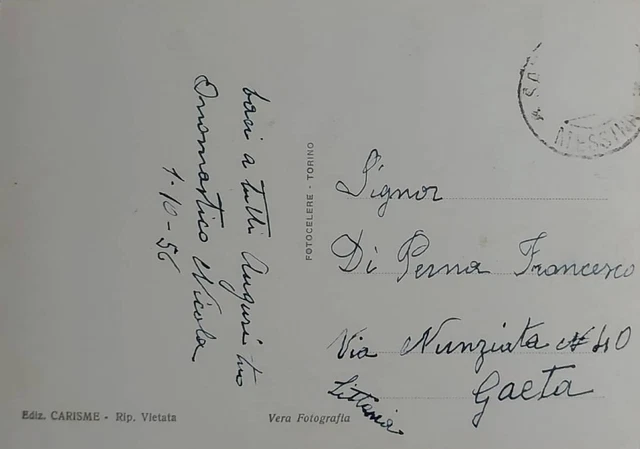 baci a tutti Auguri tuo
Onomastico Nicola
1-10-56
FOTOCELERE - TORINO
MESSINA
Signor
Di Perna Francesco
Via Nunziata N 40
Gaeta
Littoria
Ediz. CARISME - Rip. Vietata
Vera Fotografia